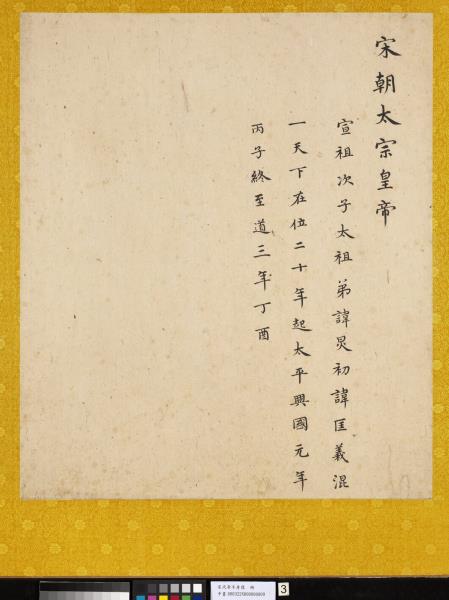 宋朝太宗皇帝
宣祖次子太祖弟諱炅初諱匡義混
一天下在位二十年起太平興國元年
丙子終至道三年丁酉
3